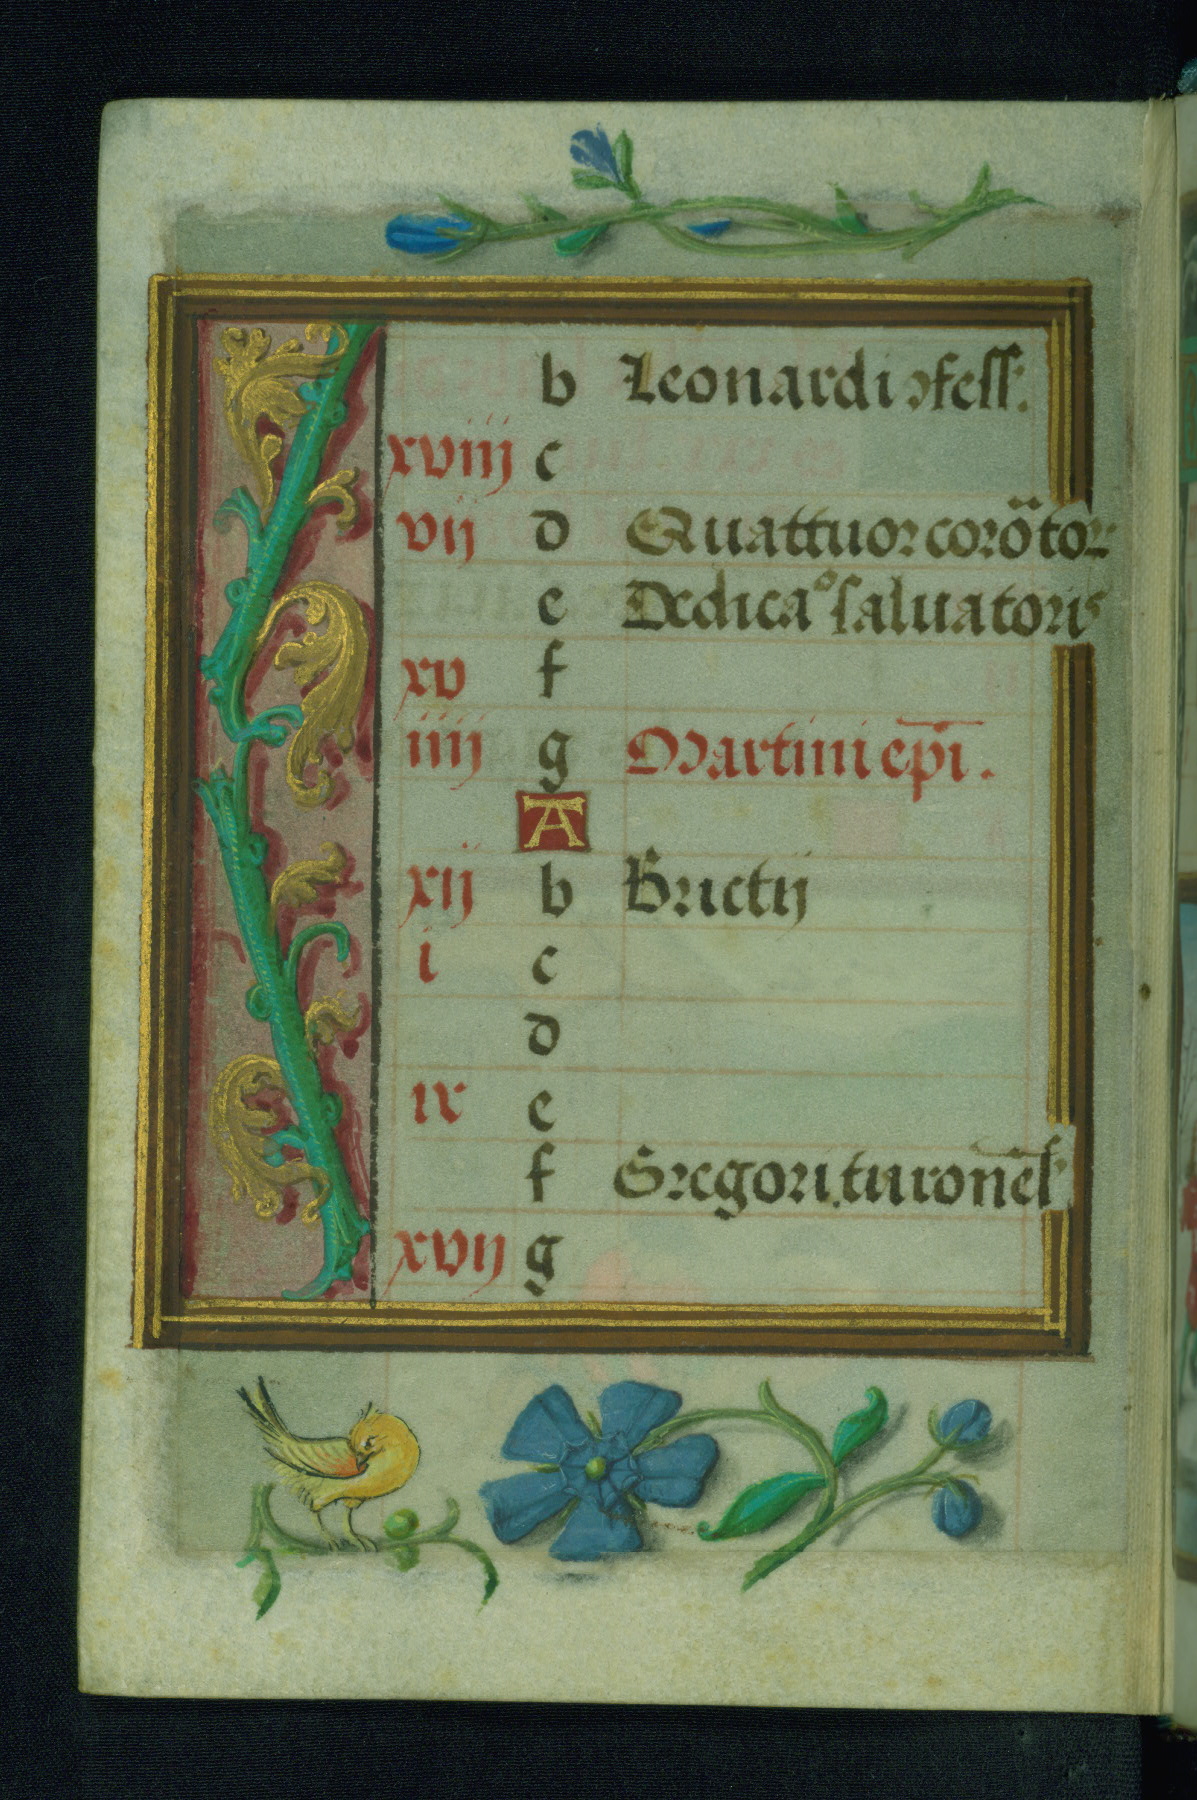 b Leonardi ɔfess.
xviij c
vij d Quattuor coro͂toꝝ
e Dedicaº saluatoris
xv f
iiij g Martini ep̅i.
A
xij b Brictij
i c
d
ix e
f Gregori. turone͂s
xvij g